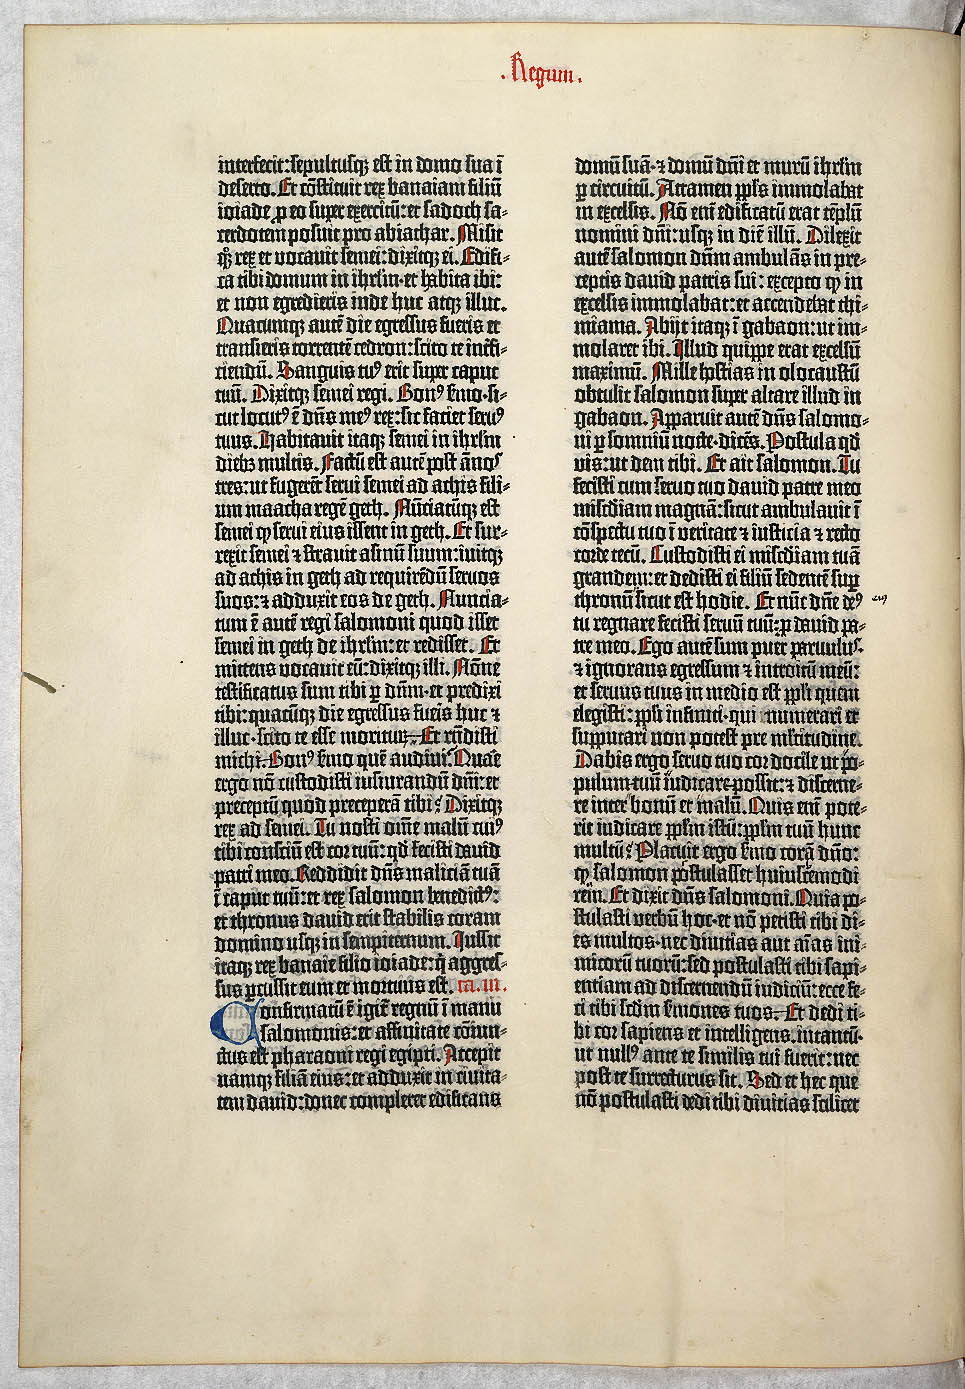 . Regum .
interfecit: sepultusq3 est in domo sua ī
deserto. Et cōstituit rex banaiam filiū
ioiade ꝓ eo super exercitū: et sadoch sa-
cerdotem posuit pro abiathar. Misit
q̄ꝫ rex et vocavit semei: dixitqꝫ ei. Edifi-
ca tibi domum in ihrl̄m · et habita ibi:
et non egredieris inde huc atqꝫ illuc.
Quacumqꝫ autē die egressus fueris et
transieris torrentē cedron: scito te int̄fi-
ciendū. Sanguis tuꝰ erit super caput
tuū. Dixitqꝫ semei regi. Bonꝰ s̄mo · si-
cut locutꝰ ē dn̄s meꝰ rex: sic faciet seruꝰ
tuus. Habitavit itaqꝫ semei in ihrl̄m
diebꝫ multis. Factū est autē post ānos
tres: ut fugerēt servi semei ad achis fili-
um maacha regē geth. Nūciatūqꝫ est
semei ꝙ servi eius issent in geth. Et sur-
rexit semei ⁊ stravit asinū suum: ivitqꝫ
ad achis in geth ad requirēdū servos
suos: ⁊ adduxit eos de geth. Nuncia-
tum ē autē regi salomoni quod isset
semei in geth de ihrl̄m: et redisset. Et
mittens vocavit eū: dixitqꝫ illi. Nōne
testificatus sum tibi ꝑ dn̄m · et predixi
tibi: quacūqꝫ die egressus fueris huc ⁊
illuc · scito te esse moriturū. Et rn̄disti
michi. Bonꝰ s̄mo quē audivi. Quare
ergo nō custodisti iusiurandū dn̄i: et
preceptū quod preceperā tibi? Dixitqꝫ
rex ad semei. Tu nosti om̄e malū cuiꝰ
tibi consciū est cor tuū: qd̄ fecisti david
patri meo. Reddidit dn̄s maliciā tuā
ī caput tuū: et rex salomon benedictꝰ:
et thronus david erit stabilis coram
domino usqꝫ in sempiternum. Iussit
itaqꝫ rex banaie filio ioiade: q̄ aggres-
sus ꝑcussit eum et mortuus est. ca. iii.
Confirmatū ē igit̄ regnū ī manu
salomonis: et affinitate cōiun-
ctus est pharaoni regi egipti. Accepit
namqꝫ filiā eius: et adduxit in civita-
tem david: donec compleret edificans
domū suā · ⁊ domū dn̄i et murū ihrl̄m
ꝑ circuitū. Attamen ppl̄s immolabat
in excelsis. Nō enī edificatū erat tēplū
nomini dn̄i: usqꝫ in diē illū. Dilexit
autē salomon dn̄m ambulās in pre-
ceptis david patris sui: excepto ꝙ in
excelsis immolabat: et accendebat thi-
miama. Abijt itaqꝫ ī gabaon: ut im-
molaret ibi. Illud quippe erat excelsū
maximū. Mille hostias in olocaustū
obtulit salomon super altare illud in
gabaon. Apparuit autē dn̄s salomo-
ni ꝑ somniū nocte · dicēs. Postula qd̄
vis: ut dem tibi. Et ait salomon. Tu
fecisti cum servo tuo david patre meo
misc̄diam magnā: sicut ambulavit ī
cōspectu tuo ī veritate ⁊ iusticia ⁊ recto
corde tecū. Custodisti ei misc̄diam tuā
grandem: et dedisti ei filiū sedentē suꝑ
thronū sicut est hodie. Et nūc dn̄e deꝰ
tu regnare fecisti servū tuū: ꝓ david pa-
tre meo. Ego autē sum puer parvulus
⁊ ignorans egressum ⁊ introitū meū:
et servus tuus in medio est ppl̄i quem
elegisti: ppl̄i infiniti · qui numerari et
supputari non potest pre ml̄titudine.
Dabis ergo servo tuo cor docile ut po-
pulum tuū iudicare possit: ⁊ discerne-
re inter bonū et malū. Quis enī pote-
rit iudicare ppl̄m istū: ppl̄m tuū hunc
multū? Placuit ergo s̄mo corā dn̄o:
ꝙ salomon postulasset huiuscemodi
rem. Et dixit dn̄s salomoni. Quia po-
stulasti verbū hoc · et nō petisti tibi di-
es multos · nec divitias aut aīas ini-
micorū tuorū: sed postulasti tibi sapi-
entiam ad discernendū iudiciū: ecce fe-
ci tibi scd̄m s̄mones tuos. Et dedi ti-
bi cor sapiens et intelligens · intantū ·
ut nullꝰ ante te similis tui fuerit: nec
post te surrecturus sit. Sed et hec que
nō postulasti dedi tibi divitias scilicet